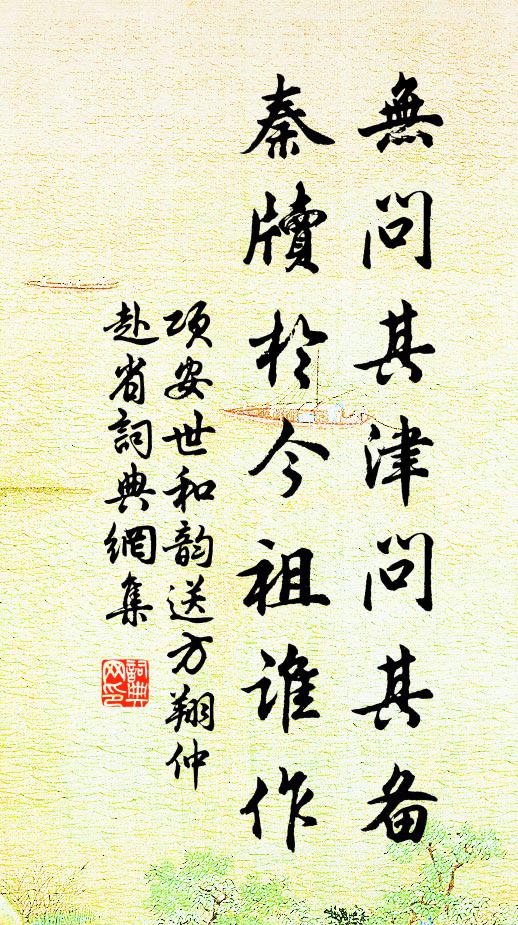 無問其津問其备
秦牘於今祖谁作
项安世和韵送方翔仲
赴省詞典網集
詞典网印